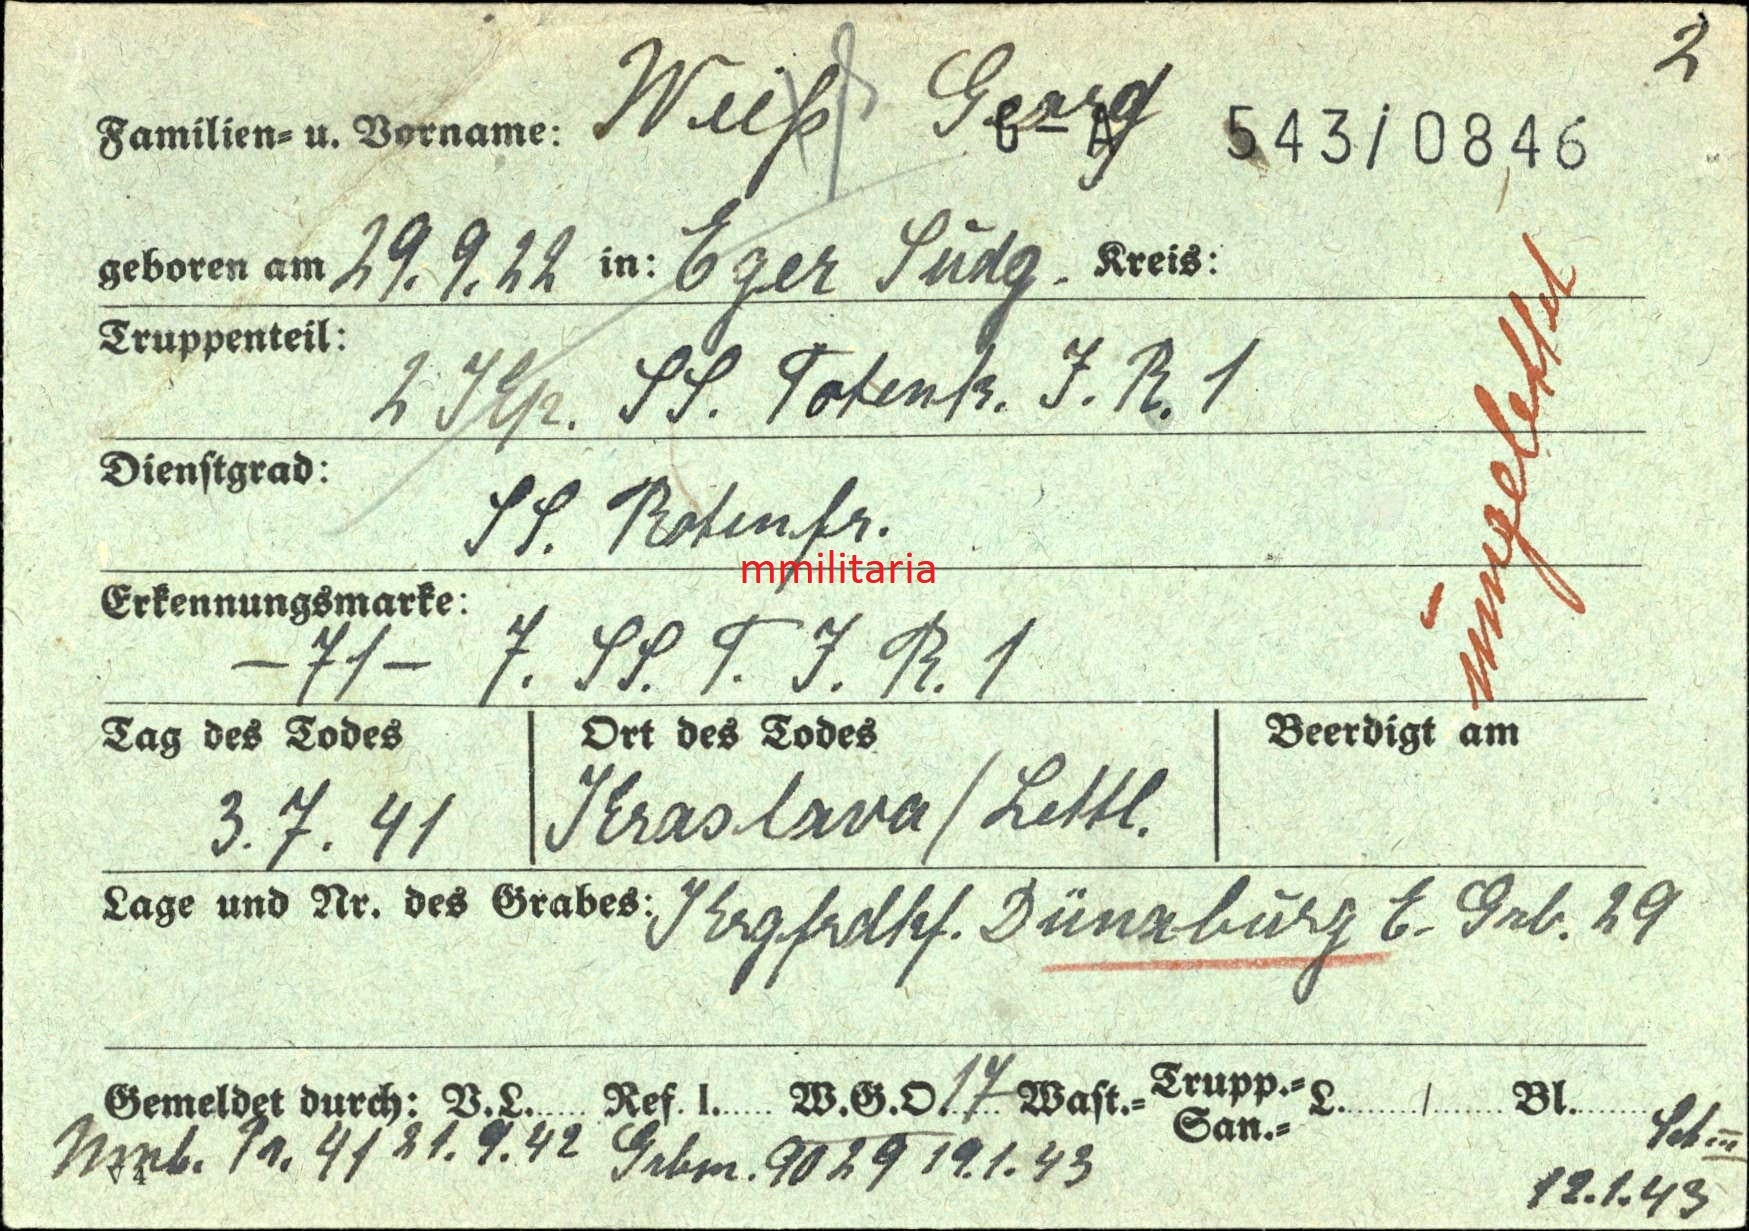 2
Familien- u. Vorname: Weiß Georg G-A 543/0846
geboren am 29.9.22 in: Eger Sudg. Kreis:
Truppenteil:
2 Kp. SS. Totenk. I. R. 1
Dienstgrad:
SS. Rotenfr.
mmilitaria
Erkennungsmarke:
-71- 7. SS. T. I. R. 1
Tag des Todes Ort des Todes Beerdigt am
3.7.41 Kraslava/Lettl.
Lage und Nr. des Grabes: Krgfrdhf. Dünaburg E. Grb. 29
Gemeldet durch: V.L. Ref. I. W.G.O. 17 Wast.- Trupp.- San.- L. / Bl.
41 21.9.42 Grbm. 9029 19.1.43
12.1.43
umgebettet